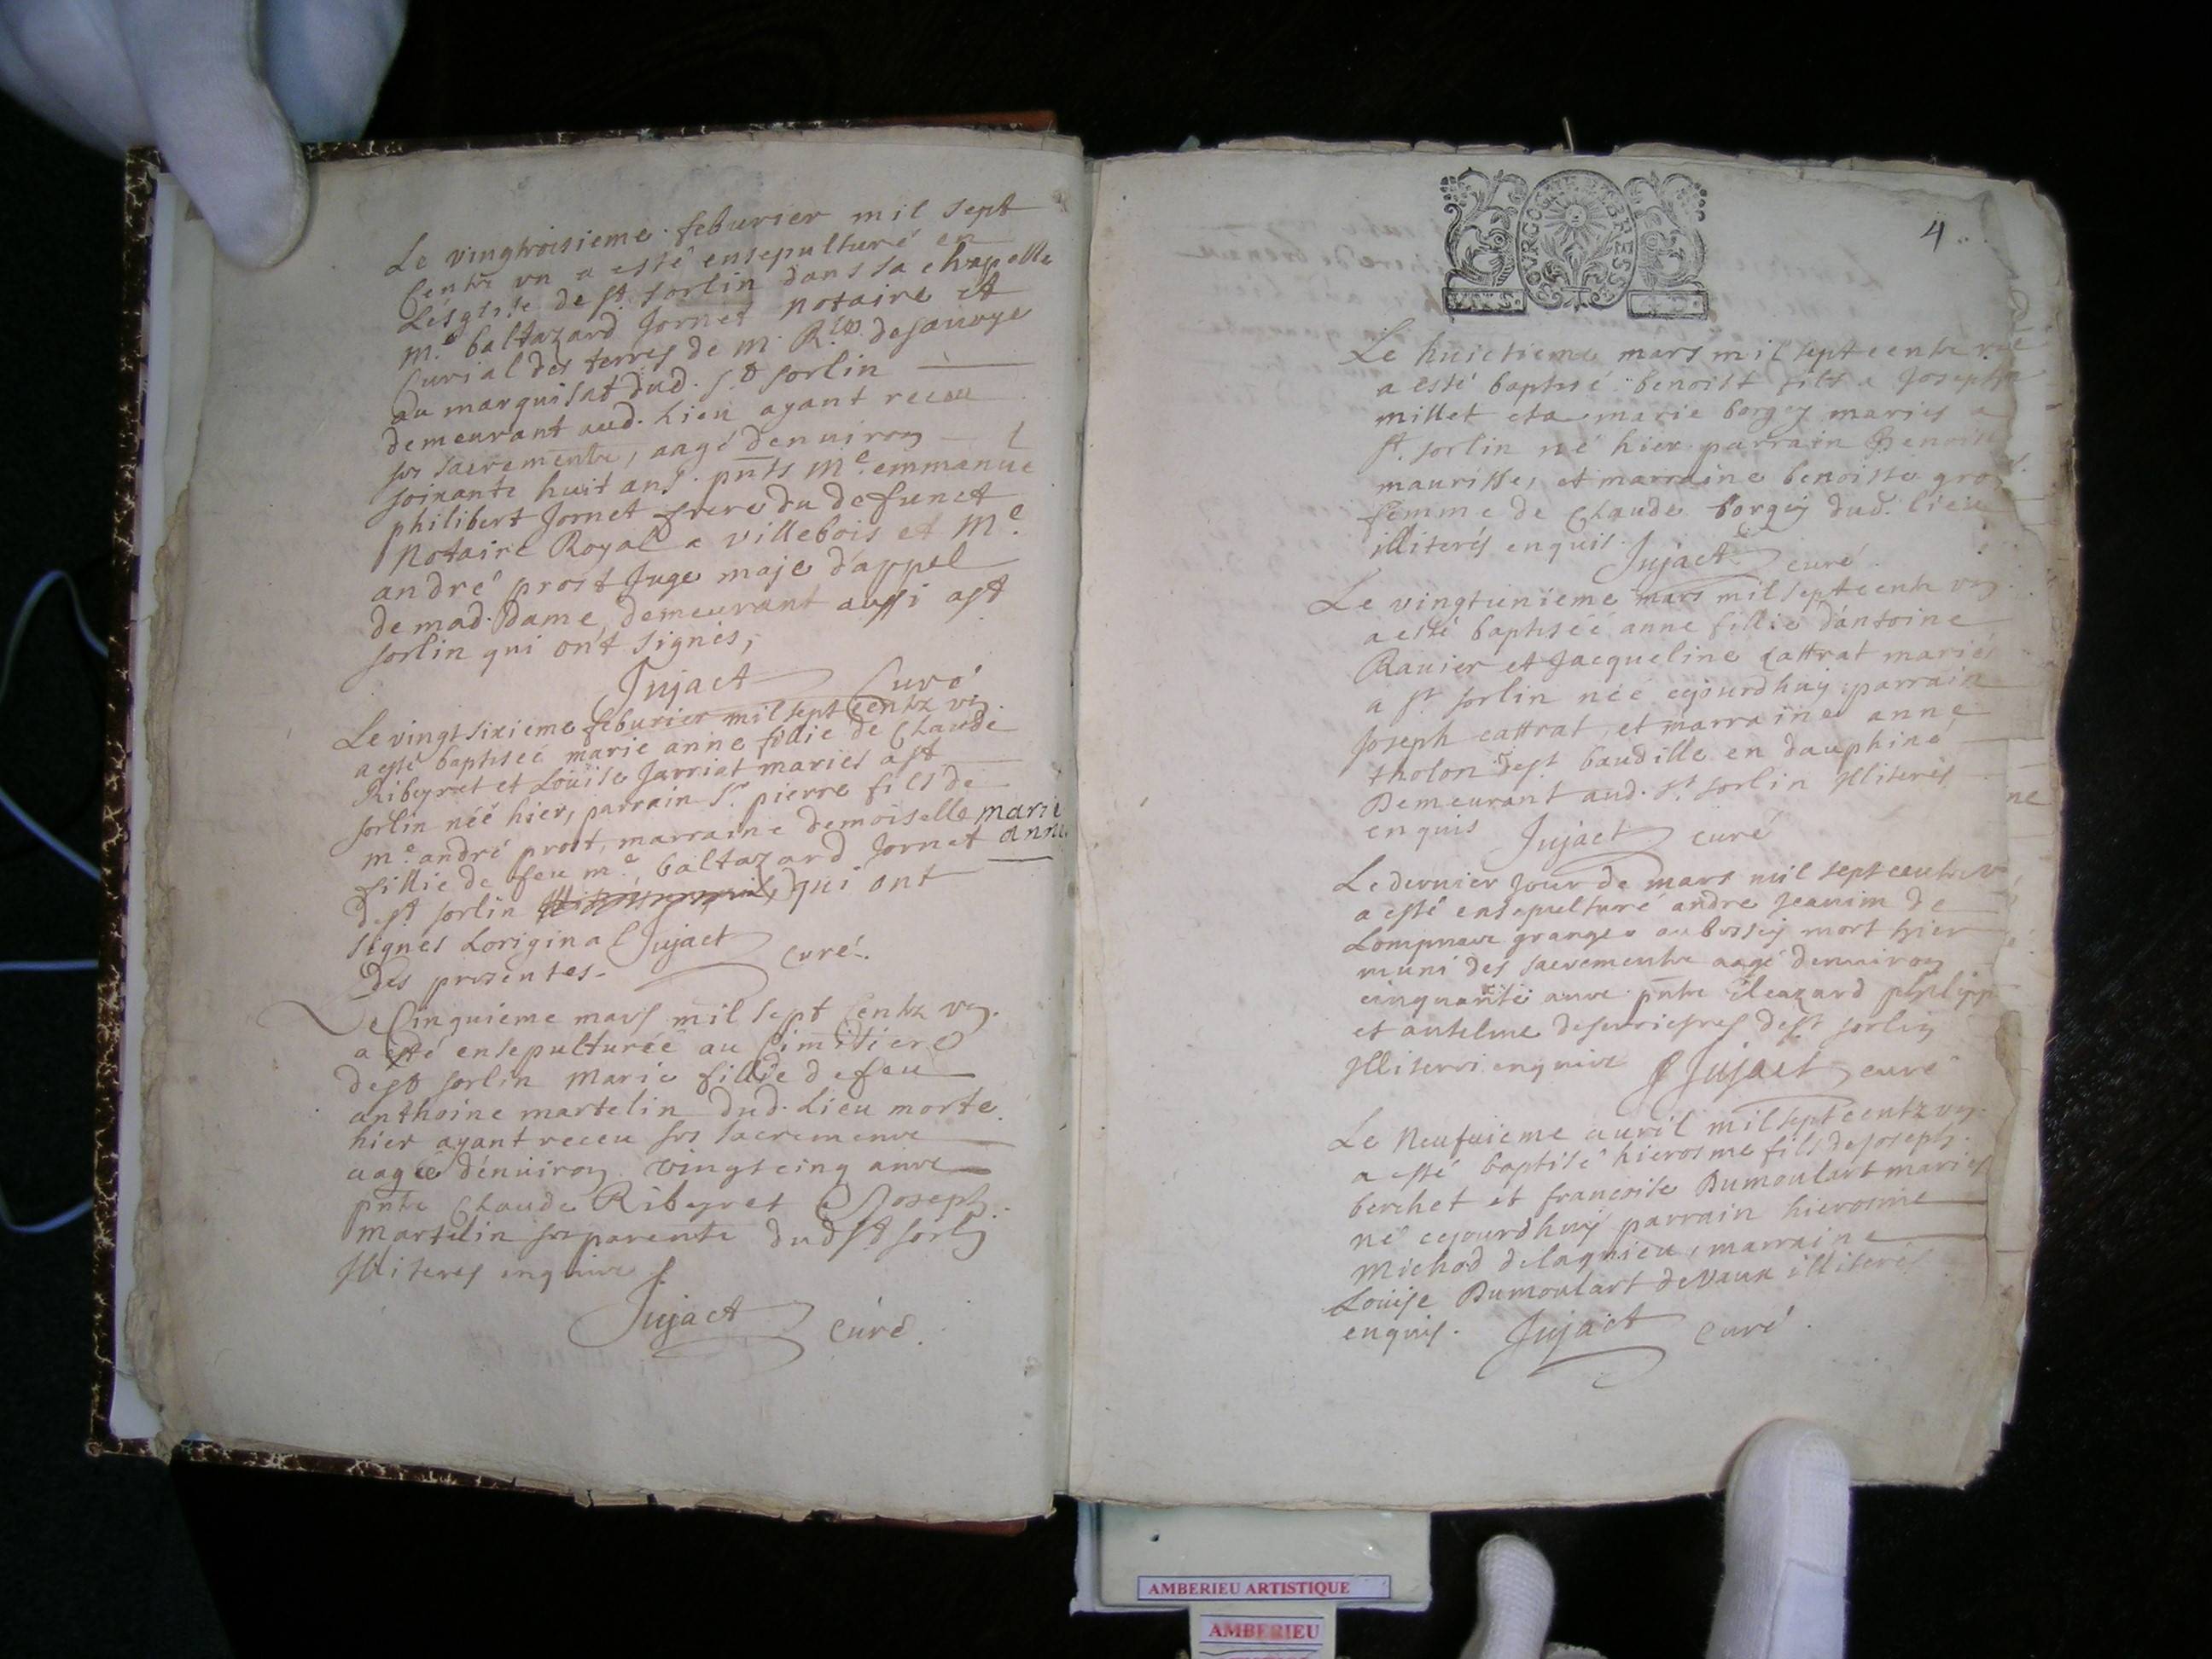 Le vingtroisieme feburier mil sept
Centz vn a esté ensepulturé en
Lésglise de st. sorlin dans sa chapelle
m.e baltazard Jornet notaire et
Curial des terres de m. R.le de sauoye
au marquisat dud. st sorlin
demeurant aud. Lieu ayant receu
ses sacrementz, aagé denuiron
soixante huit ans. pnts Me. emmanuel
philibert Jornet frere du defunct
Notaire Royal a villebois et Me.
andré prost Juge maje d'appel
de mad. Dame, demeurant aussi a st
sorlin qui ont signés,
Jujact Curé
Le vingt sixieme feburier mil sept Centz vn
a esté baptiséé marie anne fillie de Claude
Ribeyret et Loüise Jarriat mariés a st
sorlin néé hier, parrain Sr. pierre fils de
me. andré prost, marraine demoiselle marie
anne
fillie de feu me. baltazard Jornet
de st sorlin qui ont
signés Loriginal Jujact curé.
Des presentes.
Le Cinquieme mars mil sept Centz vn.
a esté ensepulturéé au Cimitiere
de st sorlin Marie fillie de feu
anthoine martelin dud. Lieu morte
hier ayant receu ses sacremens
aagéé dénuiron vingt cinq ans
pnts Claude Ribeyret & Joseph
Martelin ses parents dud st sorlin
Illiterés enquis
Jujact Curé.
4
BOURGOGNE BRESSE
Le huictieme mars mil sept centz vn
a esté baptisé benoist fils a Joseph
millet et a marie borgey mariés a
st. sorlin né hier parrain Benoist
maurisse, et marraine benoiste gros
femme de Claude borgey dud. lieu
illiterés enquis. Jujact curé
Le vingtunieme mars mil sept centz vn
a esté baptiséé anne fillie d'antoine
Rauier et Jacqueline cattrat mariés
a st sorlin néé cejourdhuy parrain
Joseph cattrat, et marraine anne
tholon de st baudille en dauphiné
Demeurant aud. st. sorlin Illiterés
ne
enquis Jujact curé
Le dernier Jour de mars mil sept centz vn
a esté ensepulturé andre Jeanim de
Lompnas granger au bessey mort hier
muni des sacrements aagé denuiron
cinquante ans pnts eleazard philippe
et antelme desurieres de st sorlin
Illiterés enquis Jujact curé
Le Neufuieme auril mil sept centz vn.
a esté baptisé hierosme fils de Joseph
berchet et francoise Dumoulart mariés
né cejourdhuy parrain hierosme
Michod de lagnieu, marraine
Loüise Dumoulart de Vaux illiterés
enquis. Jujact Curé.
AMBERIEU ARTISTIQUE
AMBERIEU